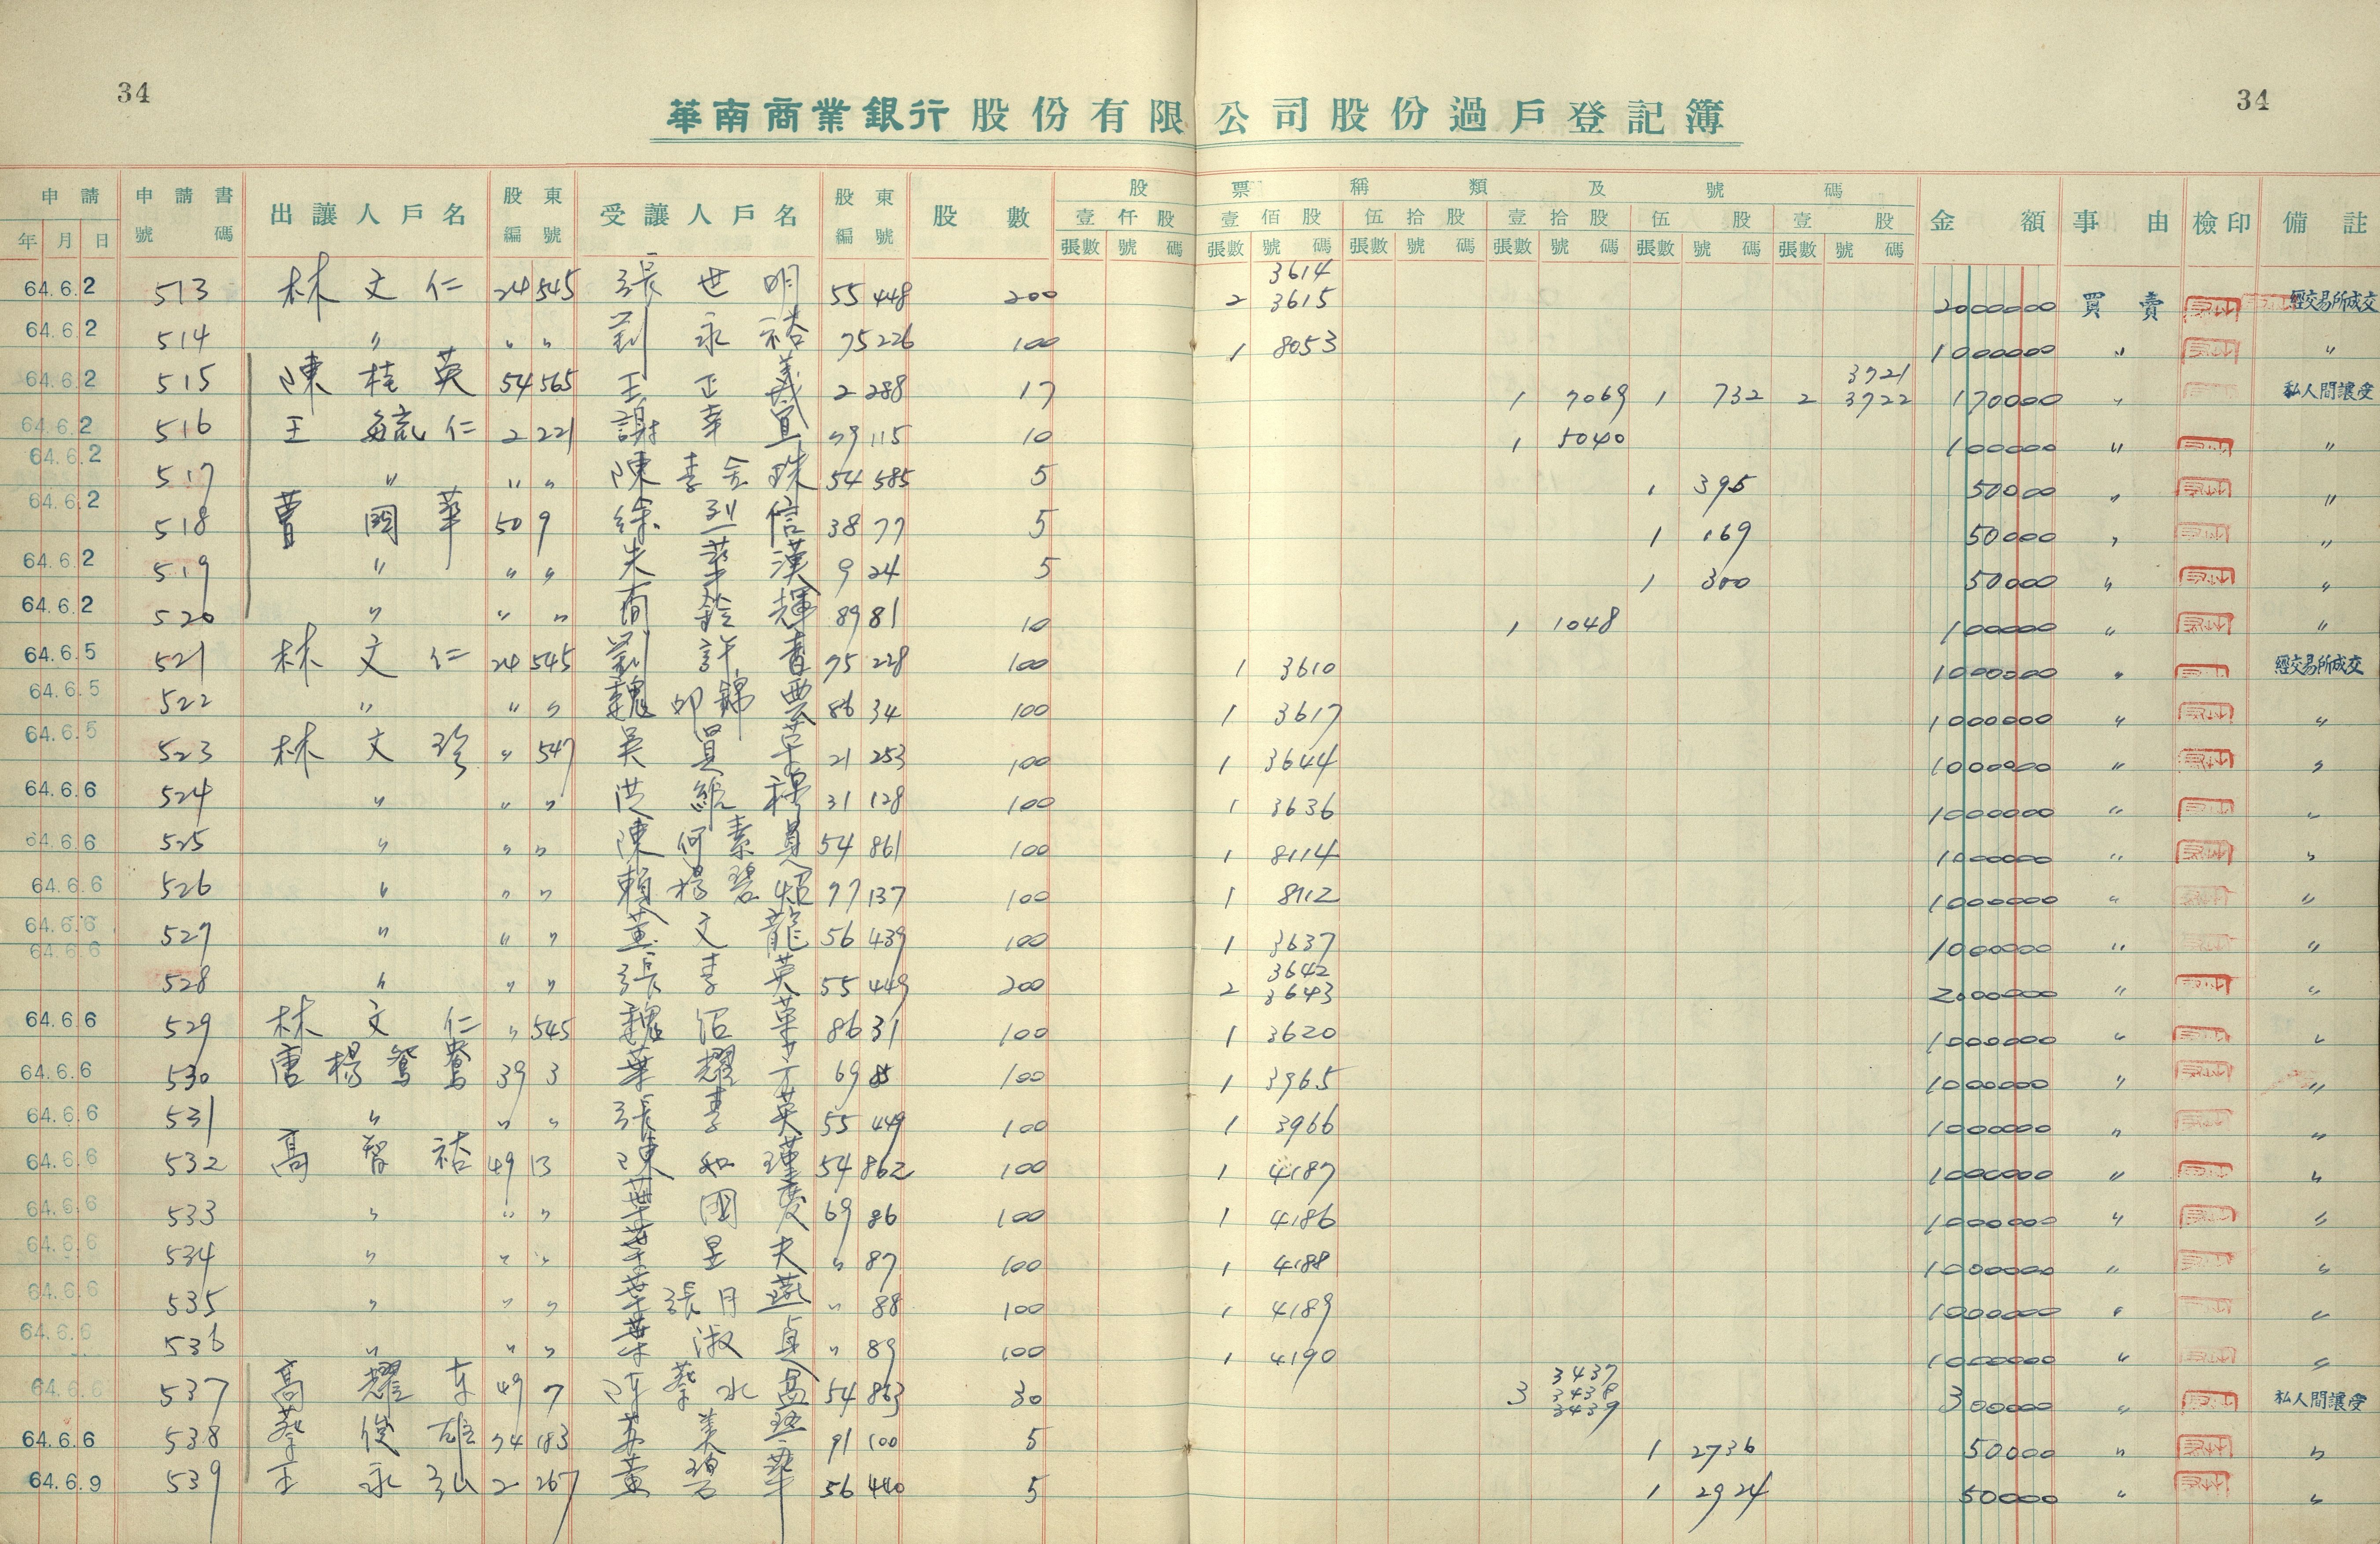 34
34
華南商業銀行股份有限公司股份過戶登記簿
申請 申請書 出讓人戶名 股東 受讓人戶名 股東 股數 股票種類及號碼 金額 事由 檢印 備註
年 月 日 號碼 編號 編號 壹仟股 壹佰股 伍拾股 壹拾股 伍股 壹股
張數 號碼 張數 號碼 張數 號碼 張數 號碼 張數 號碼 張數 號碼
3614
64.6.2 513 林文仁 24 545 張世明 55 448 200 2 3615 2000000 買賣 經交易所成交
64.6.2 514 〃 〃 〃 劉永裕 75 226 100 1 8053 1000000 〃 〃
3721
64.6.2 515 陳桂英 54 565 王正義 2 288 17 1 7069 1 732 2 3722 170000 〃 私人間讓受
64.6.2 516 王毓仁 2 221 謝幸宜 79 115 10 1 5040 100000 〃 〃
64.6.2 517 〃 〃 〃 陳李金珠 54 585 5 1 395 50000 〃 〃
64.6.2 518 曹國華 50 9 徐烈信 38 77 5 1 169 50000 〃 〃
64.6.2 519 〃 〃 〃 朱華漢 9 24 5 1 300 50000 〃 〃
64.6.2 520 〃 〃 〃 輝 89 81 10 1 1048 100000 〃 〃
64.6.5 521 林文仁 24 545 劉許青 75 228 100 1 3610 1000000 〃 經交易所成交
64.6.5 522 〃 〃 〃 魏邱錦雲 86 34 100 1 3617 1000000 〃 〃
64.6.5 523 林文珍 〃 547 吳昌華 21 253 100 1 3644 1000000 〃 〃
64.6.6 524 〃 〃 〃 洪 31 128 100 1 3636 1000000 〃 〃
64.6.6 525 〃 〃 〃 陳何素員 54 861 100 1 8114 1000000 〃 〃
64.6.6 526 〃 〃 〃 賴楊碧 77 137 100 1 8112 1000000 〃 〃
64.6.6 527 〃 〃 〃 黃文龍 56 439 100 1 3637 1000000 〃 〃
3642
64.6.6 528 〃 〃 〃 張李英 55 449 200 2 3643 2000000 〃 〃
64.6.6 529 林文仁 〃 545 魏沼葉 86 31 100 1 3620 1000000 〃 〃
64.6.6 530 唐楊鴛鴦 39 3 葉耀方 69 85 100 1 3965 1000000 〃 〃
64.6.6 531 〃 〃 〃 張李英 55 449 100 1 3966 1000000 〃 〃
64.6.6 532 高智祐 49 13 陳如瑾 54 862 100 1 4187 1000000 〃 〃
64.6.6 533 〃 〃 〃 葉國慶 69 86 100 1 4186 1000000 〃 〃
64.6.6 534 〃 〃 〃 葉昱夫 〃 87 100 1 4188 1000000 〃 〃
64.6.6 535 〃 〃 〃 葉張月燕 〃 88 100 1 4189 1000000 〃 〃
64.6.6 536 〃 〃 〃 葉淑貞 〃 89 100 1 4190 1000000 〃 〃
3437
3438
64.6.6 537 高耀東 49 7 陳蔡水 54 863 30 3 3439 300000 〃 私人間讓受
64.6.6 538 蔡俊雄 74 183 蘇美 91 100 5 1 2736 50000 〃 〃
64.6.9 539 王永弘 2 267 黃碧華 56 440 5 1 2924 50000 〃 〃